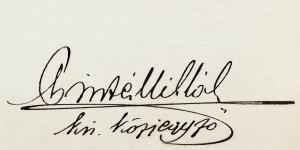 Cinté Mihál
kir. közjegyző